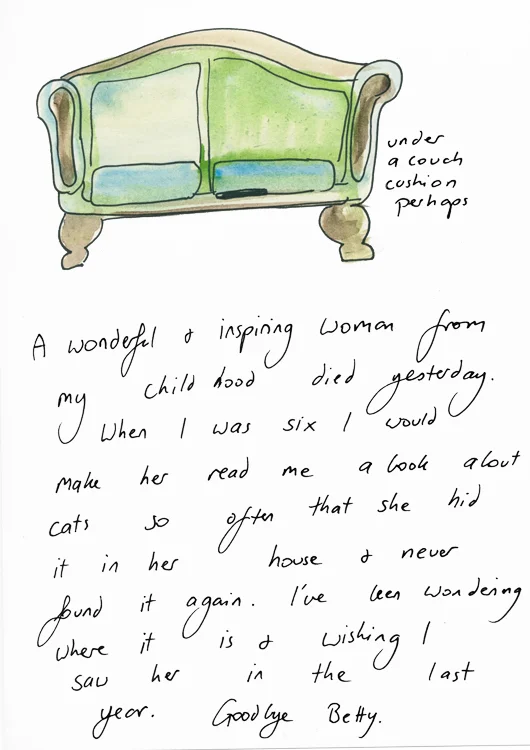 under
a couch
cushion
perhaps
A wonderful & inspiring woman from
my childhood died yesterday.
When I was six I would
make her read me a book about
cats so often that she hid
it in her house & never
found it again. I've been wondering
where it is & wishing I
saw her in the last
year. Goodbye Betty.